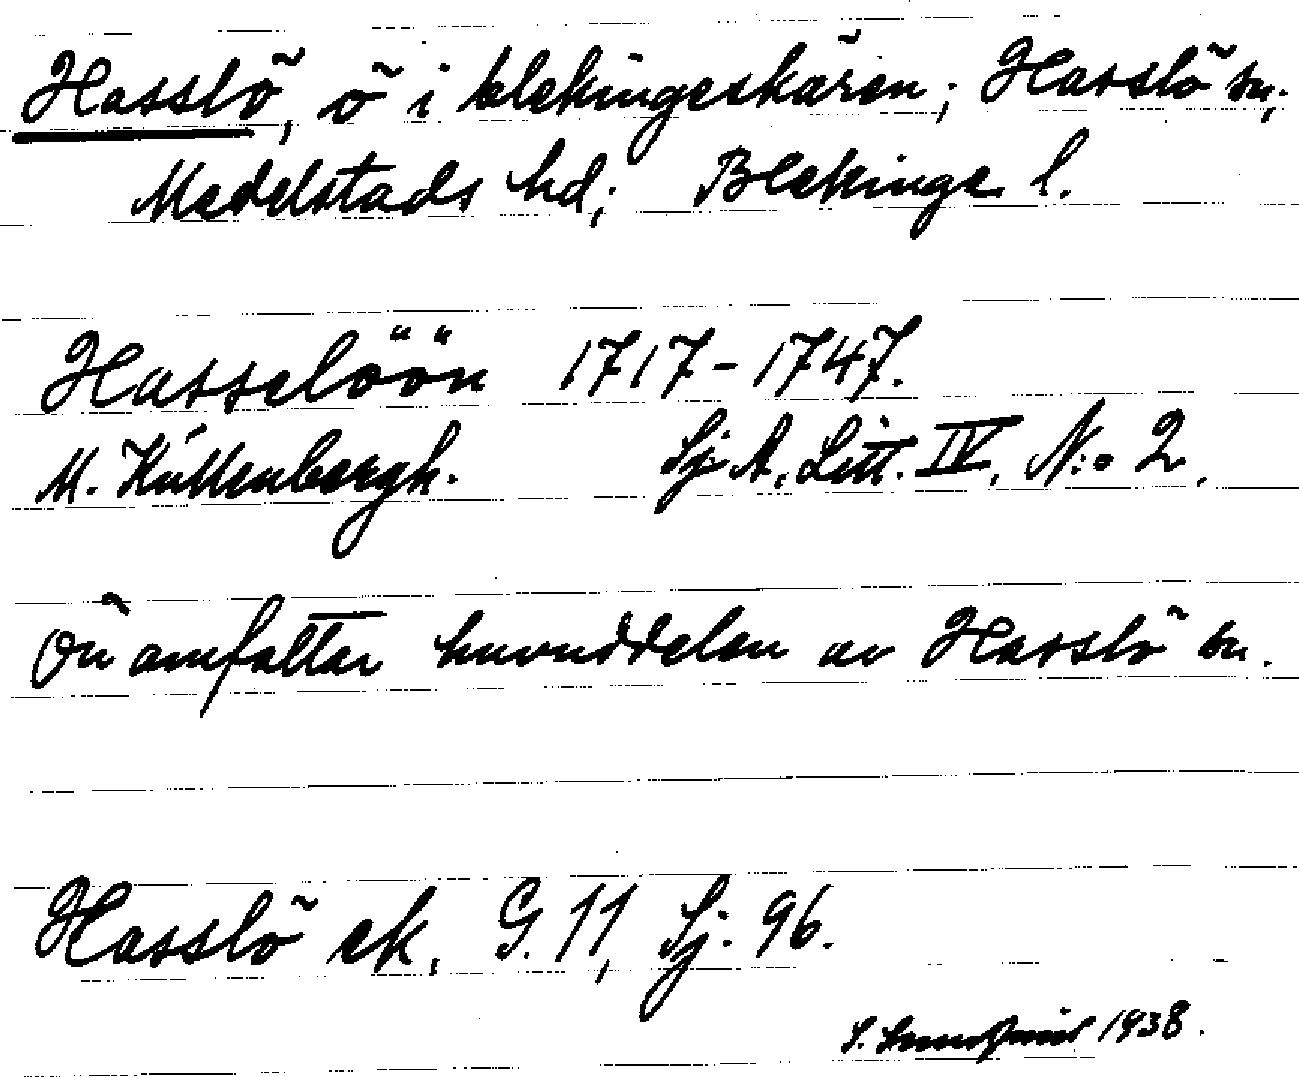 Hasslö, ö i blekingeskären; Hasslö sn;
Medelstads hd; Blekinge l.
Hasselöön 1717-1747.
M. Küllenbergh. Sj. A. Litt. IV, N:o 2.
Ön omfattar huvuddelen av Hasslö sn.
Hasslö ek. G. 11, Sj. 96.
S. 1938.